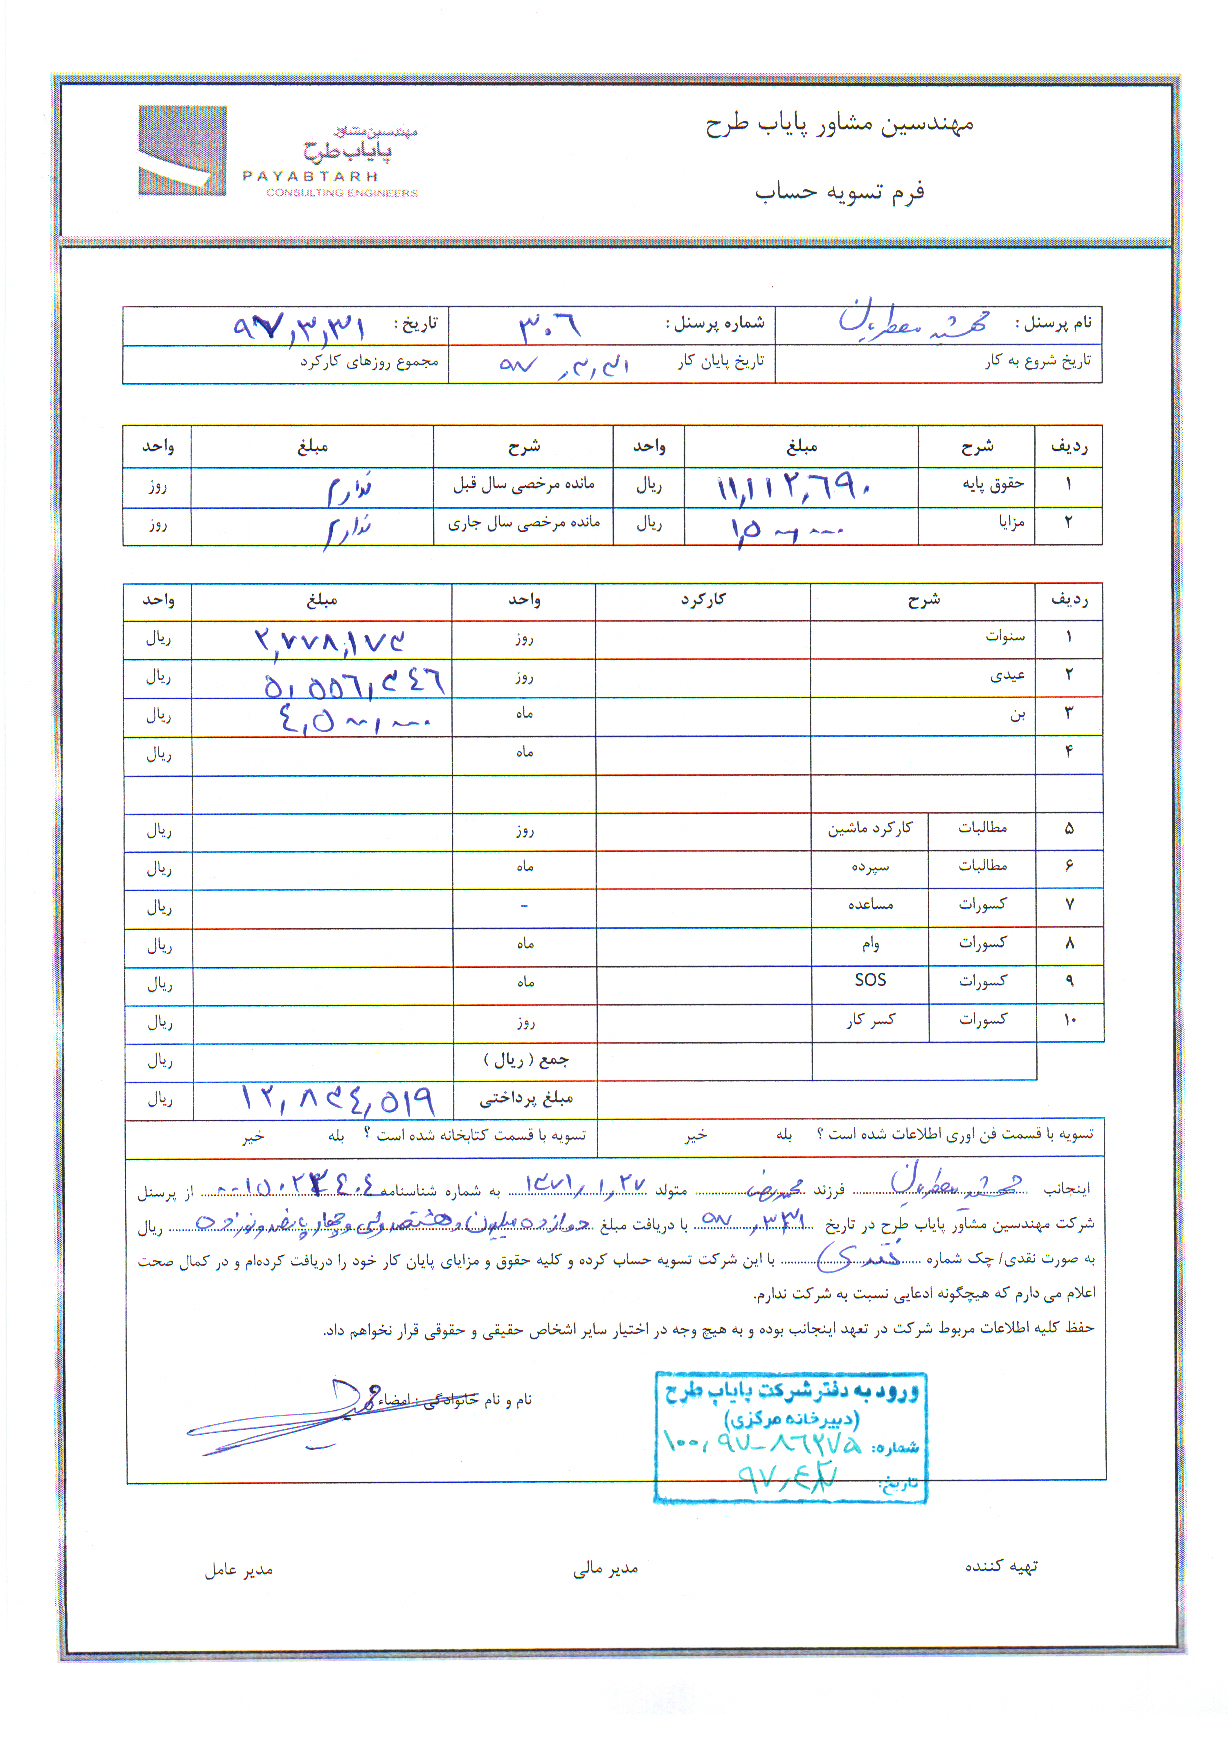 مهندسین مشاور پایاب طرح
فرم تسویه حساب
مهندسین مشاور
پایاب طرح
PAYABTARH
CONSULTING ENGINEERS
نام پرسنل : شماره پرسنل : ۳۰۶ تاریخ : ۹۷,۳,۳۱
تاریخ شروع به کار تاریخ پایان کار ۹۷,۳,۳۱ مجموع روزهای کارکرد
ردیف شرح مبلغ واحد شرح مبلغ واحد
۱ حقوق پایه ۱۱,۱۱۲,۶۹۰ ریال مانده مرخصی سال قبل ندارم روز
۲ مزایا ۱,۵۰۰,۰۰۰ ریال مانده مرخصی سال جاری ندارم روز
ردیف شرح کارکرد واحد مبلغ واحد
۱ سنوات روز ۲,۷۷۸,۱۷۳ ریال
۲ عیدی روز ۵,۵۵۶,۳۴۶ ریال
۳ بن ماه ۴,۵۰۰,۰۰۰ ریال
۴ ماه ریال
۵ مطالبات کارکرد ماشین روز ریال
۶ مطالبات سپرده ماه ریال
۷ کسورات مساعده - ریال
۸ کسورات وام ماه ریال
۹ کسورات SOS ماه ریال
۱۰ کسورات کسر کار روز ریال
جمع ( ریال ) ریال
مبلغ پرداختی ۱۲,۸۳۴,۵۱۹ ریال
تسویه با قسمت فن اوری اطلاعات شده است ؟ بله خیر تسویه با قسمت کتابخانه شده است ؟ بله خیر
اینجانب فرزند محمدرضا متولد ۱۳۷۱,۱,۲۷ به شماره شناسنامه از پرسنل
شرکت مهندسین مشاور پایاب طرح در تاریخ ۹۷,۳,۳۱ با دریافت مبلغ دوازده میلیون و هشتصد و سی و چهار و پانصد و نوزده ریال
به صورت نقدی/ چک شماره نقدی با این شرکت تسویه حساب کرده و کلیه حقوق و مزایای پایان کار خود را دریافت کرده‌ام و در کمال صحت
اعلام می دارم که هیچگونه ادعایی نسبت به شرکت ندارم.
حفظ کلیه اطلاعات مربوط شرکت در تعهد اینجانب بوده و به هیچ وجه در اختیار سایر اشخاص حقیقی و حقوقی قرار نخواهم داد.
نام و نام خانوادگی : امضاء
ورود به دفتر شرکت پایاب طرح
(دبیرخانه مرکزی)
شماره: ۱۰۰,۹۷-۸۶۲۷۵
تاریخ:
تهیه کننده مدیر مالی مدیر عامل